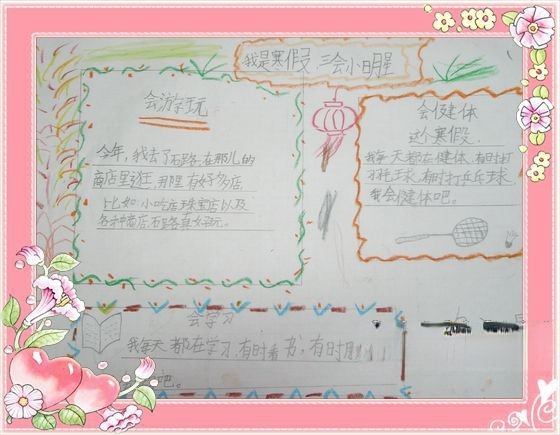 我是寒假 三会小明星
会游玩
今年,我去了石路,在那儿的
商店里逛,那里有好多店,
比如:小吃店、珠宝店以及
各种商店,石路真好玩。
会健体
这个寒假,
我每天都在健体,有时打
羽毛球,有时打乒乓球,
我会健体吧。
会学习
我每天都在学习,有时看书,有时
吧。